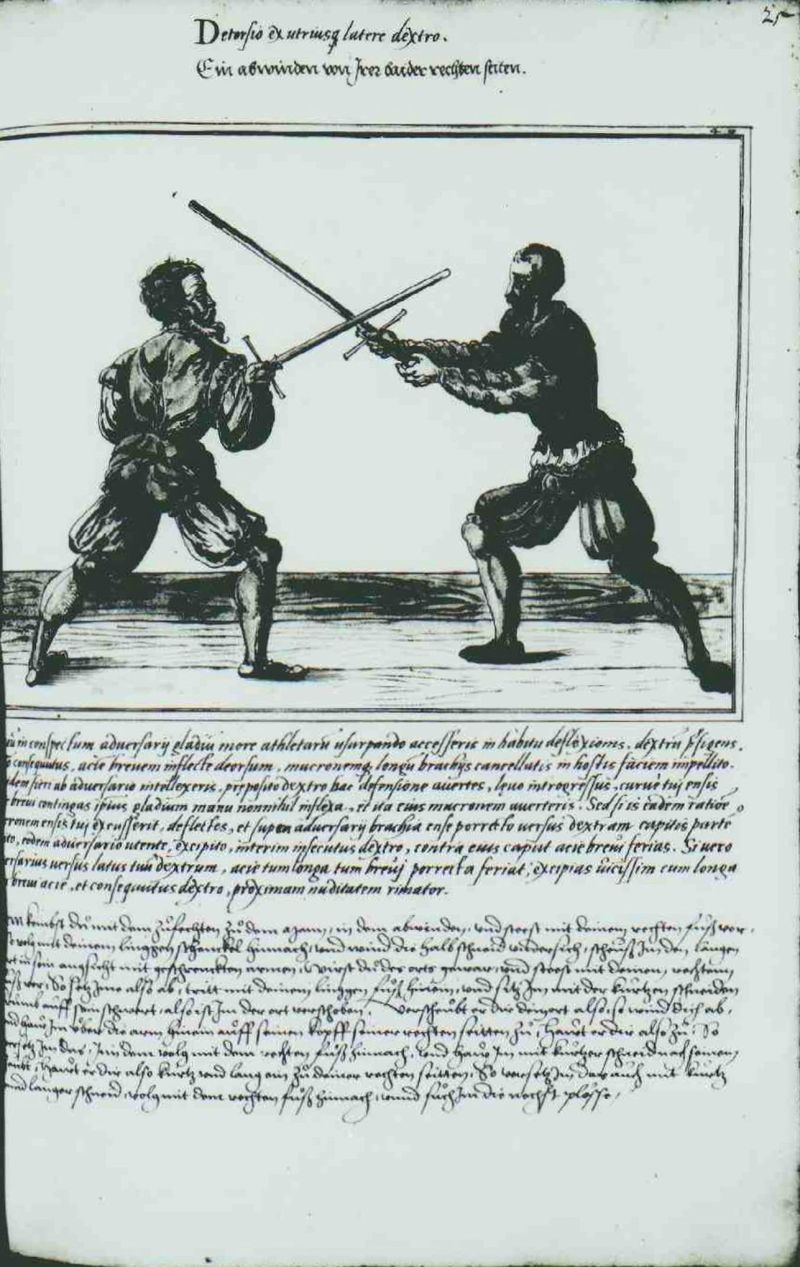 25
Detorsio ex utriusq latere dextro.
Ein abwinden von Irer baider rechten seiten.
in conspectum adversarij gladiū more athletarū usurpando accesseris in habitu deflexionis, dextrū p̄figens,
consequutus, acie brevem inflecte deorsum, mucronemq longū brachijs cancellatis in hostis faciem impellito.
fieri ab adversario intellexeris, præposito dextro hac defensione avertes, lęvo introgressus, curvę tuj ensis
brevi contingas ipsius gladium manu nonnihil inflexa, et ita eius mucronem averteris. Sed si is eadem ratione
ensis tuj excusserit, deflectes, et supra adversarij brachia ense porrecto versus dextram capitis parte
eodem adversario utente, excipito, interim insecutus dextro, contra eius caput acie brevi ferias. Si vero
versus latus tuū dextrum, acie tum longa tum brevj porrecta feriat, excipias vicissim cum longa
brevi acie, et consequutus dextro, proximam nuditatem rimator.
kombst du mit dem zufechten zu dem mann, in dem abwinden, und steest mit deinem rechten fuß vor,
volg mit deinem linggen schenckel hinnach, und wind die halb schneid undersich, scheuß Im den langen
ort in sein angsicht mit geschrenckten armen, wirst du des orts gewar, und steest mit deinem rechten
fuß vor, So setz Ime also ab, tritt mit deinem linggen fuß hinein, und sitz Im mit der kurtzen schneiden
auff sein schwert, also ist Im der ort verschoben. Verscheubt er dir den ort also, so wind dich ab,
und haw Im uber die arm hinein auff seinen kopff seiner rechten seitten zu, Hawt er dir also zu, So
versetz Im das, In dem volg mit dem rechten fuß hinnach, und haw Im mit kurtzer schneid nach seinem
Hawt er dir also kurtz und lang ein zu deiner rechten seitten, So versetz Im das auch mit kurtz
und langer schneid, volg mit dem rechten fuß hinnach, unnd such Im die nechst plösse,